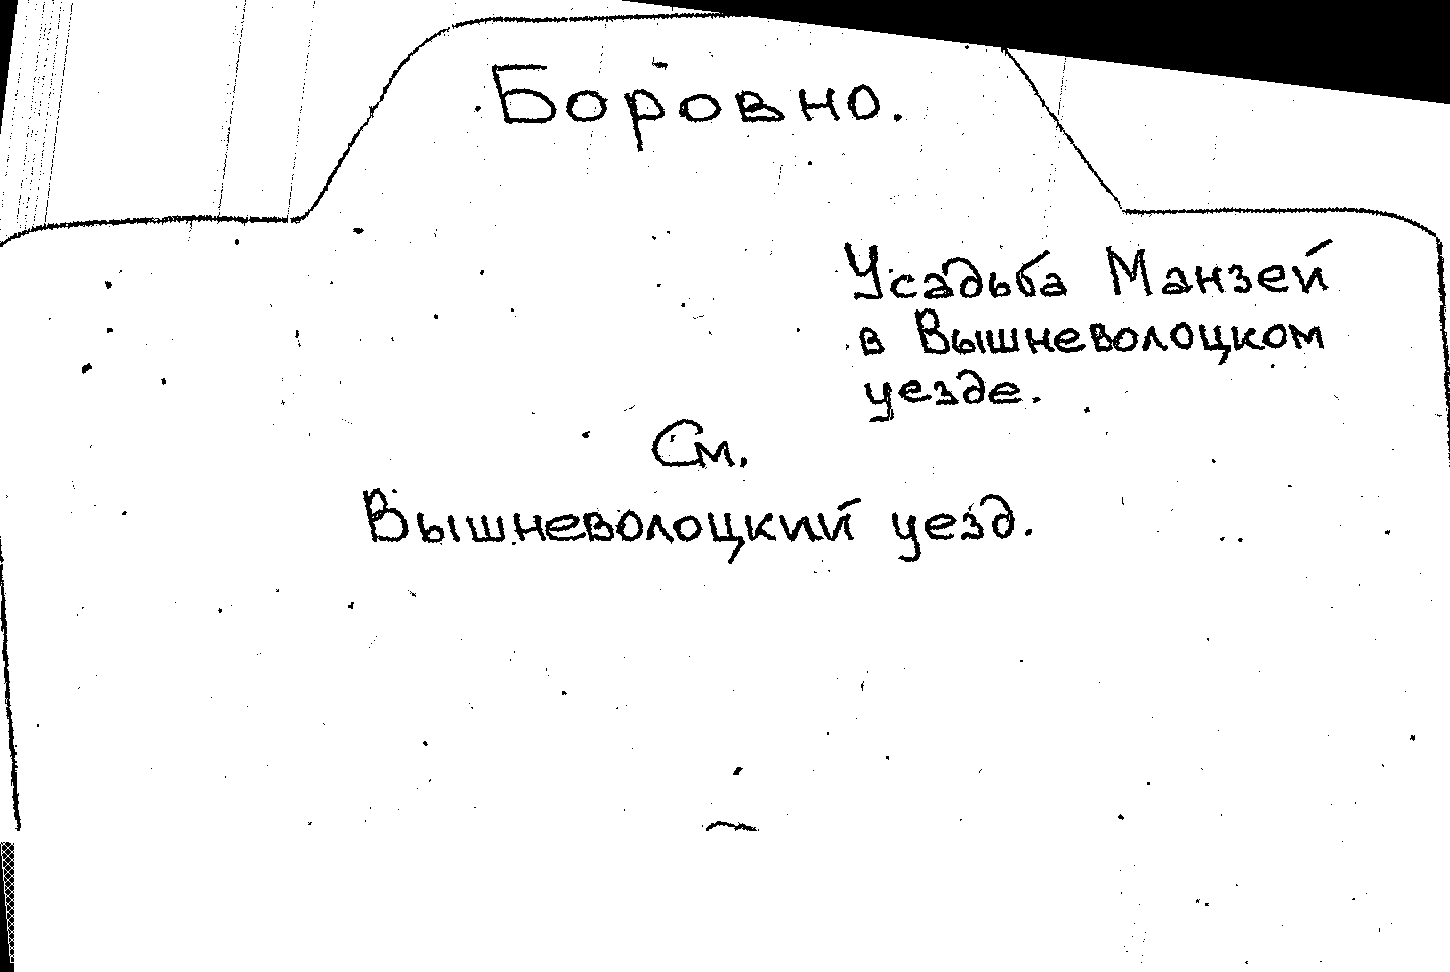 Боровно.
Усадьба Манзей
в Вышневолоцком
уезде.
См.
Вышневолоцкий уезд.